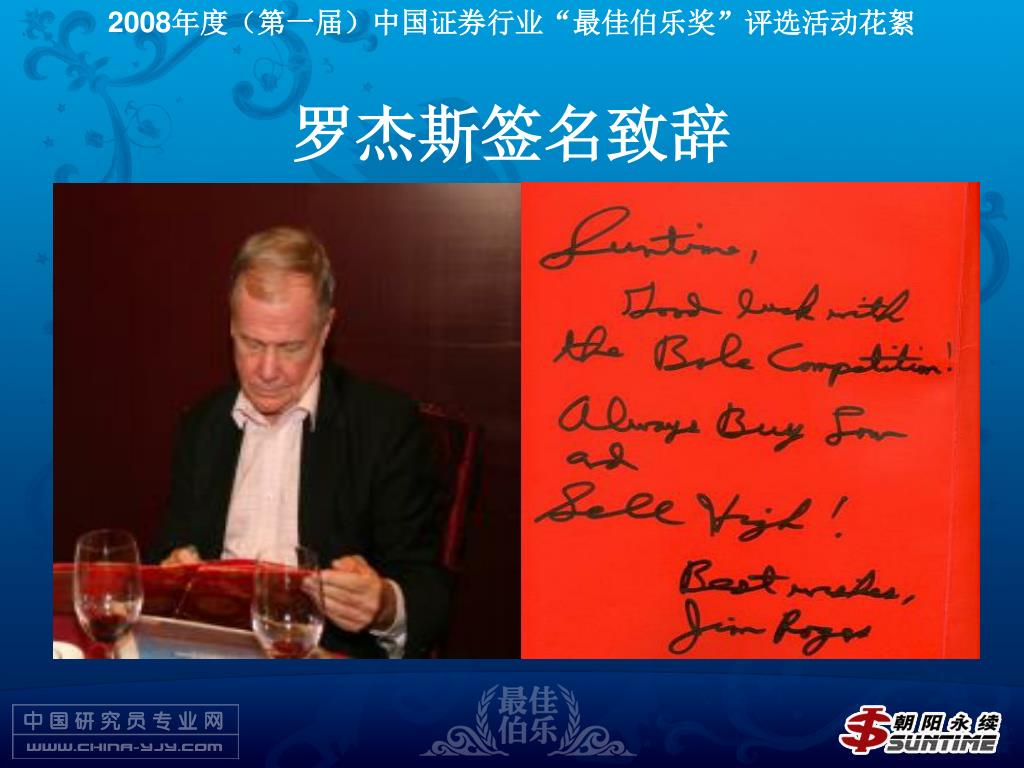 2008年度（第一届）中国证券行业“最佳伯乐奖”评选活动花絮
罗杰斯签名致辞
Suntime,
Good luck with
the Bole Competition!
Always Buy Low
ad
Sell High!
Best wishes,
Jim Rogers
最佳
伯乐
中国研究员专业网
www.CHINA-YJY.com
朝阳永续
SUNTIME